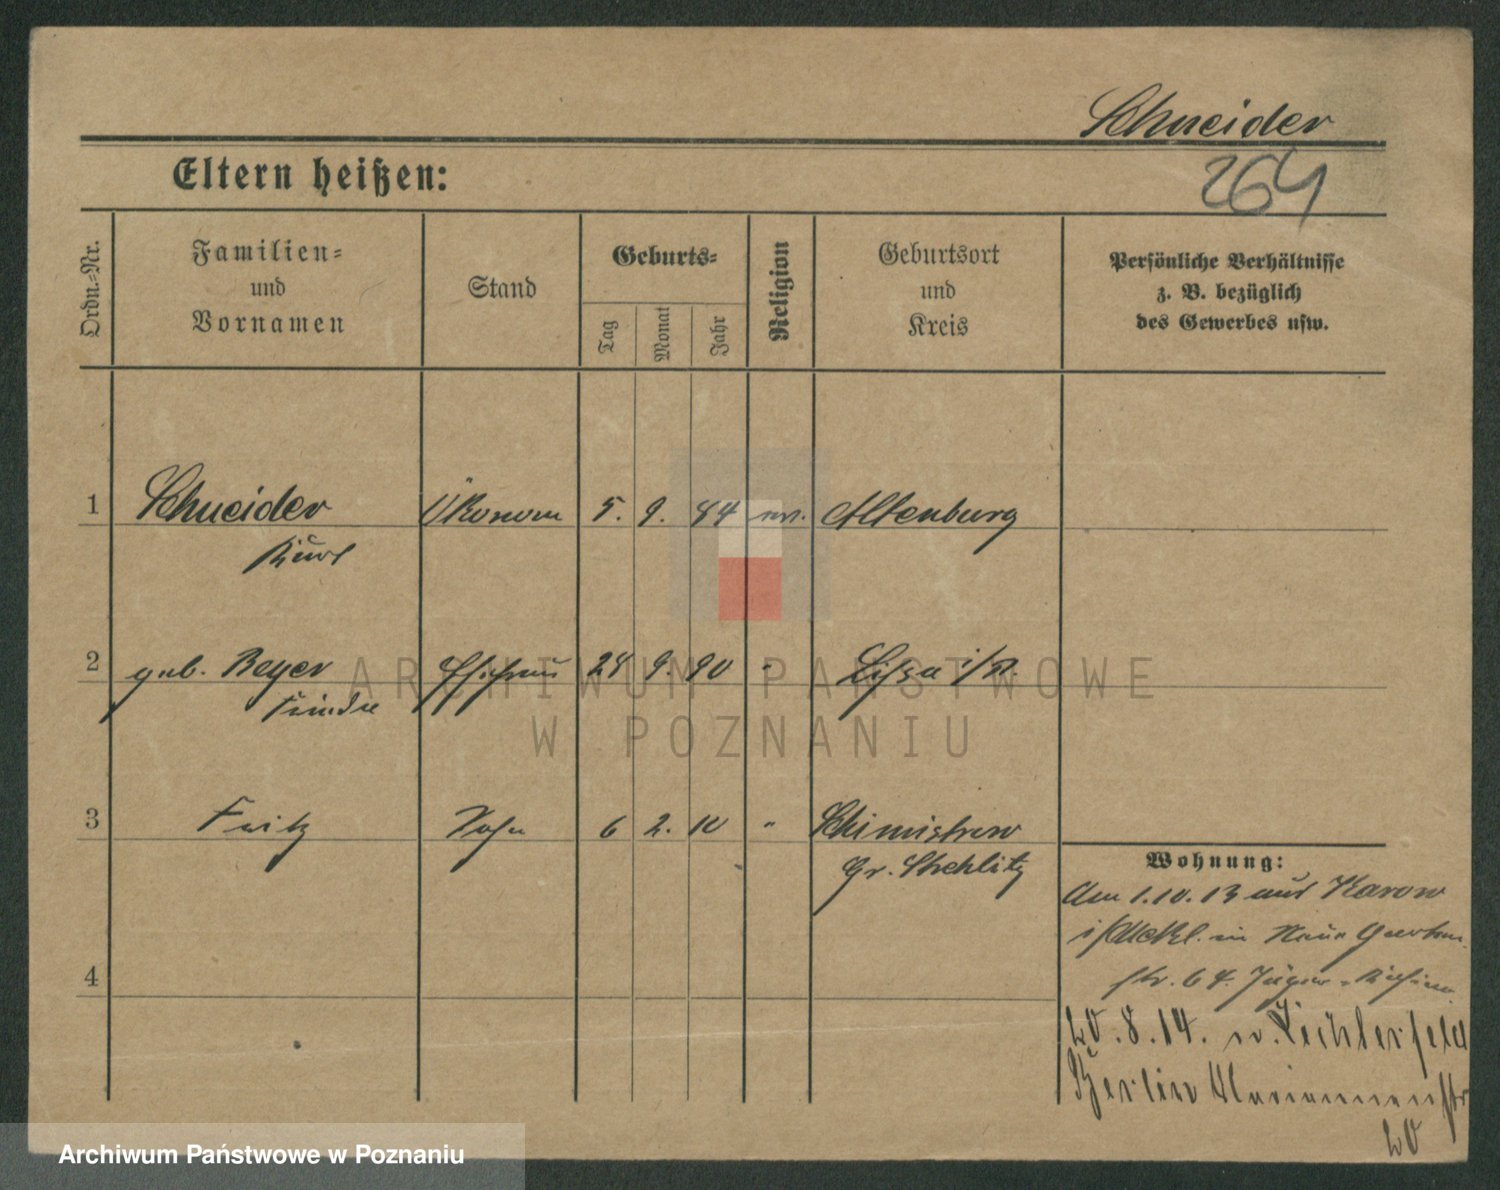 Schneider
264
Eltern heißen:
Ordn.-Nr.
Familien-
und
Vornamen
Stand
Geburts-
Tag
Monat
Jahr
Religion
Geburtsort
und
Kreis
Persönliche Verhältnisse
z. B. bezüglich
des Gewerbes usw.
1 Schneider Ökonom 5. 9. 84 Altenburg
Kurt
2 geb. Beyer Ehefrau 24 9. 90 " Lissa i/P.
3 Fritz Sohn 6 2. 10 " Schimischow
Gr. Strehlitz
4
Wohnung:
Am 1.10.13 aus Karow
i/Meckl. in
str. 64.
20.8.14. n. Lichterfeld
Berlin Mariannenstr
20
ARCHIWUM PAŃSTWOWE
W POZNANIU
Archiwum Państwowe w Poznaniu